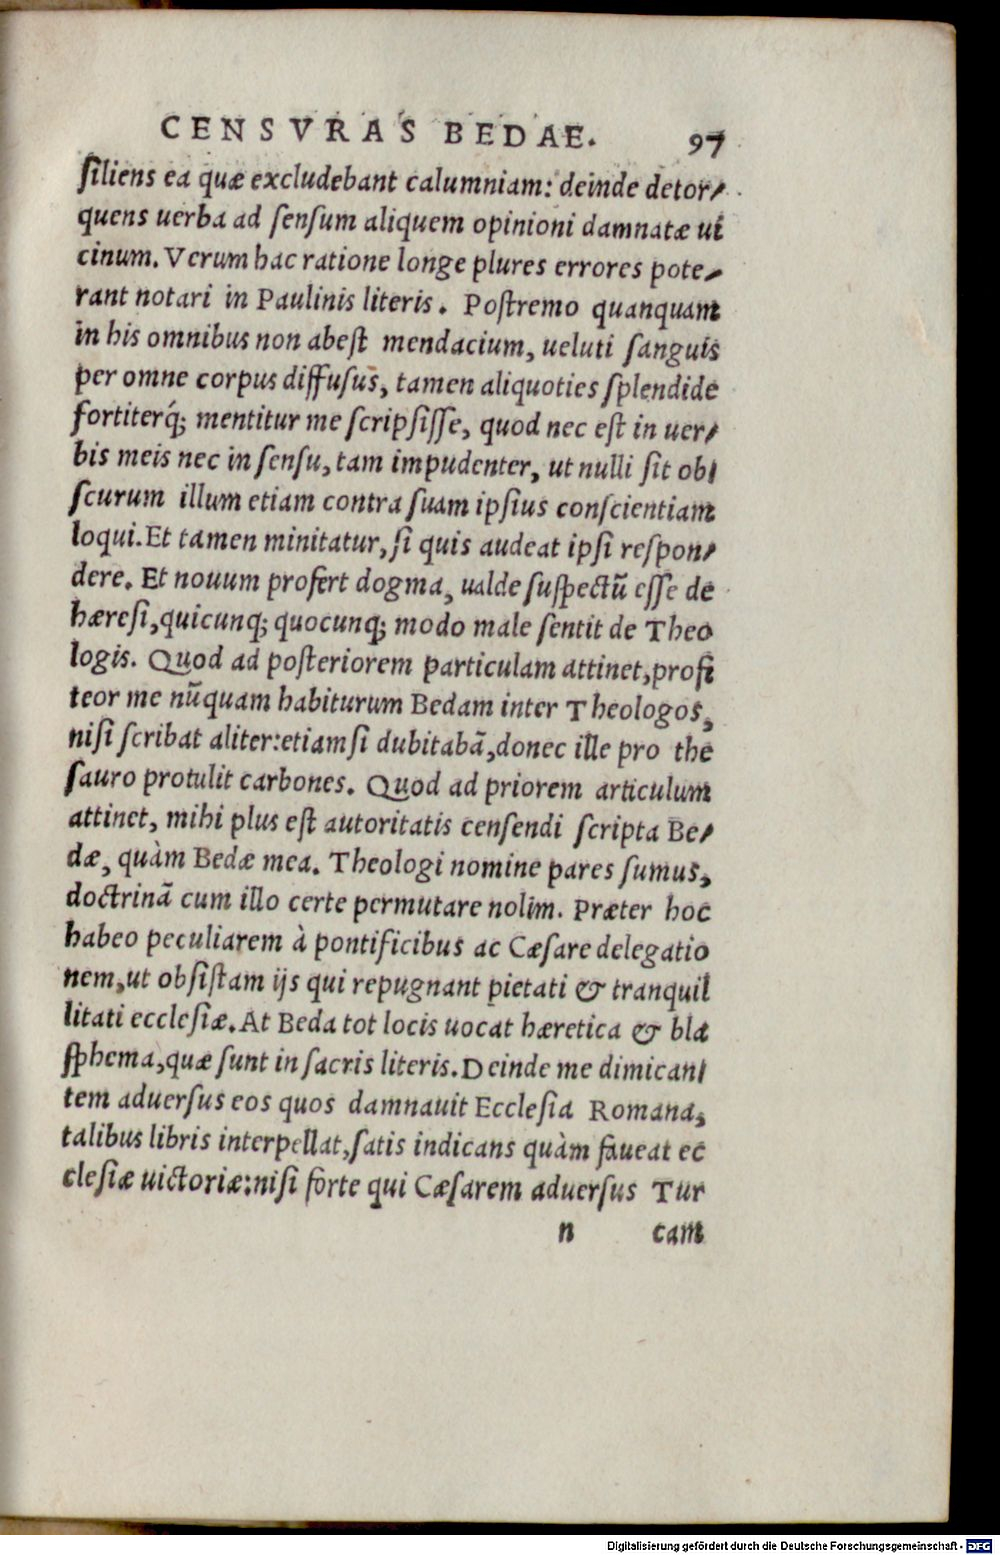 CENSVRAS BEDAE. 97
ſiliens ea quæ excludebant calumniam: deinde detor-
quens uerba ad ſenſum aliquem opinioni damnatæ ui
cinum. Verum hac ratione longe plures errores pote-
rant notari in Paulinis literis. Poſtremo quanquam
in his omnibus non abeſt mendacium, ueluti ſanguis
per omne corpus diffuſus, tamen aliquoties ſplendide
fortiterq́; mentitur me ſcripſiſſe, quod nec eſt in uer-
bis meis nec in ſenſu, tam impudenter, ut nulli ſit ob-
ſcurum illum etiam contra ſuam ipſius conſcientiam
loqui. Et tamen minitatur, ſi quis audeat ipſi reſpon-
dere. Et nouum profert dogma, ualde ſuſpectũ eſſe de
hæreſi, quicunq; quocunq; modo male ſentit de Theo
logis. Quod ad poſteriorem particulam attinet, profi
teor me nũquam habiturum Bedam inter Theologos,
niſi ſcribat aliter: etiamſi dubitabã, donec ille pro the
ſauro protulit carbones. Quod ad priorem articulum
attinet, mihi plus eſt autoritatis cenſendi ſcripta Be-
dæ, quàm Bedæ mea. Theologi nomine pares ſumus,
doctrinã cum illo certe permutare nolim. Præter hoc
habeo peculiarem à pontificibus ac Cæſare delegatio
nem, ut obſiſtam ijs qui repugnant pietati & tranquil
litati eccleſiæ. At Beda tot locis uocat hæretica & bla
ſphema, quæ ſunt in ſacris literis. Deinde me dimican-
tem aduerſus eos quos damnauit Eccleſia Romana,
talibus libris interpellat, ſatis indicans quàm faueat ec
cleſiæ uictoriæ: niſi forte qui Cæſarem aduerſus Tur
n cam
Digitalisierung gefördert durch die Deutsche Forschungsgemeinschaft - DFG